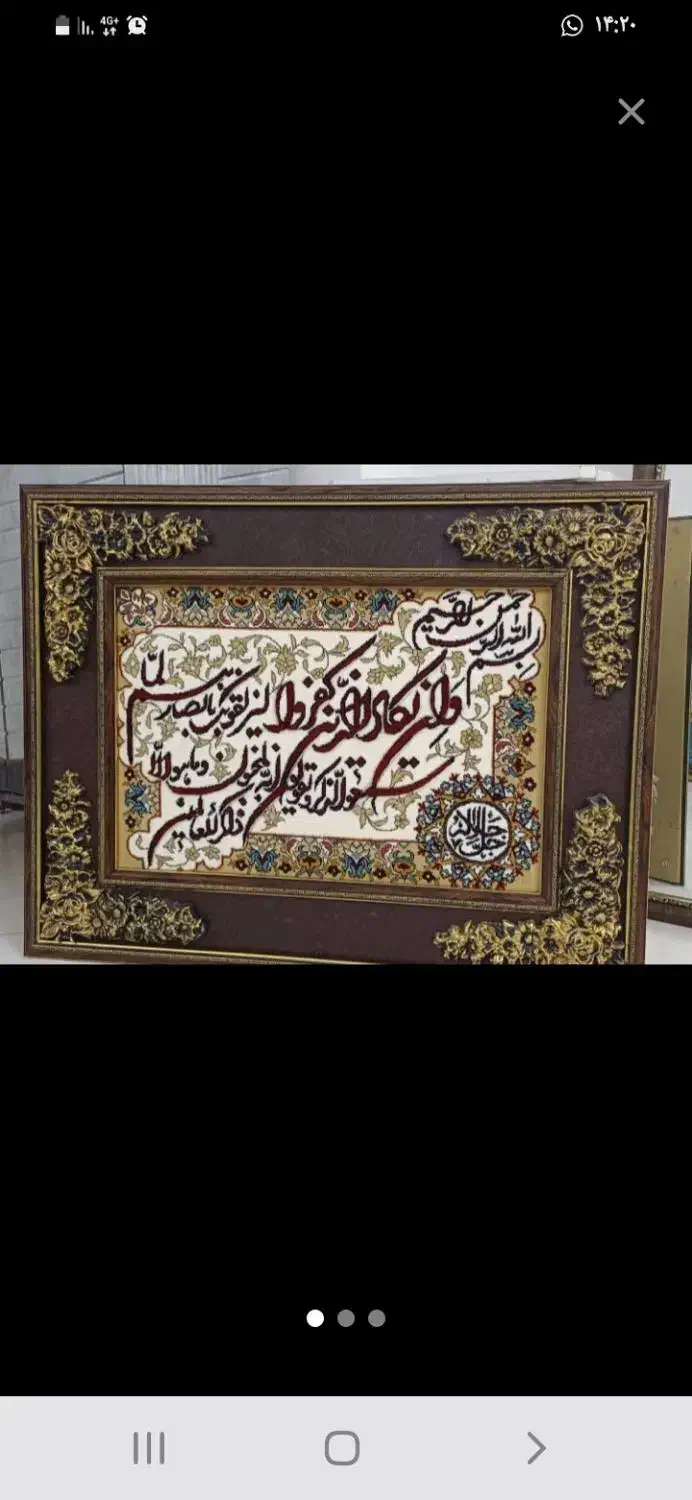 4G+
۱۴:۲۰
بسم الله الرحمن الرحیم
وان یکاد الذین کفروا لیزلقونک بابصارهم لما
سمعوا الذکر و یقولون انه لمجنون وما هو الا
ذکر للعالمین
جل جلاله